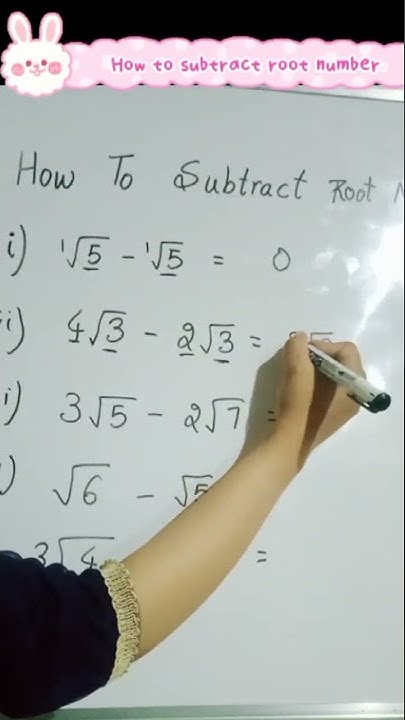 How to subtract root number
How To Subtract Root
i) ¹√5 - ¹√5 = 0
ii) 4√3 - 2√3 =
i) 3√5 - 2√7 =
) √6 - √5
3√4 =